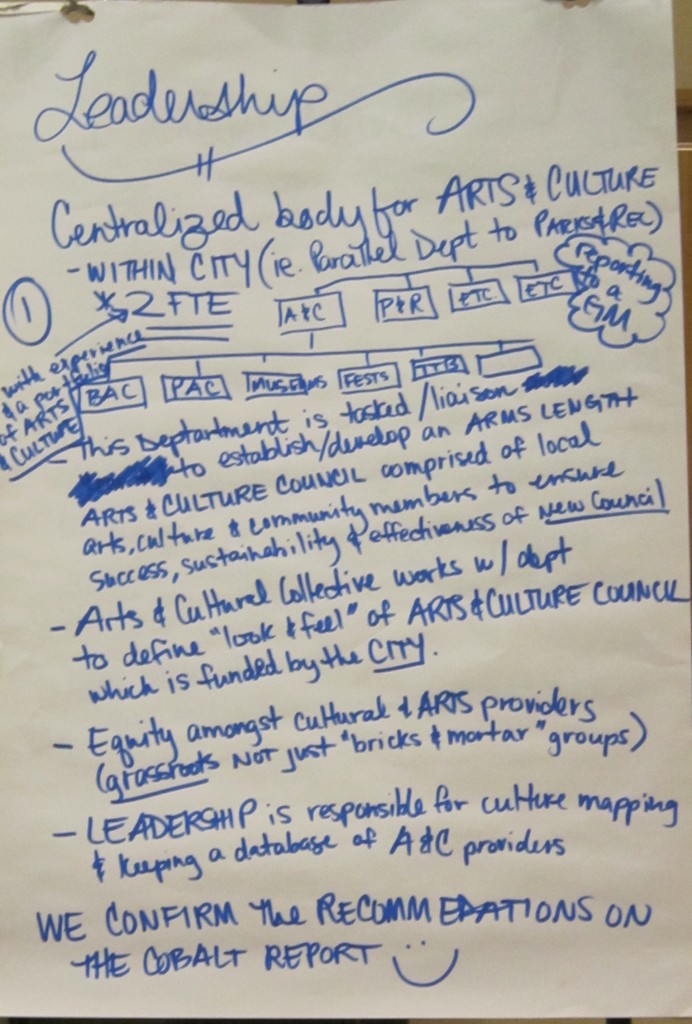 Leadership
Centralized body for ARTS & CULTURE
- WITHIN CITY (ie. Parallel Dept to PARKS & REC)
① * 2 FTE
A&C P&R ETC. ETC
Reporting
to a
GM
with experience
& a portfolio
of ARTS
& CULTURE
BAC PAC MUSEUMS FESTS TTB
- This Deptartment is tasked/liaison
to establish/develop an ARMS LENGTH
ARTS & CULTURE COUNCIL comprised of local
arts, culture & community members to ensure
success, sustainability & effectiveness of New Council
- Arts & Cultural Collective works w/ dept
to define "look & feel" of ARTS & CULTURE COUNCIL
which is funded by the CITY.
- Equity amongst cultural & ARTS providers
(grassroots NOT just "bricks & mortar" groups)
- LEADERSHIP is responsible for culture mapping
& keeping a database of A&C providers
WE CONFIRM the RECOMMEDATIONS ON
THE COBALT REPORT